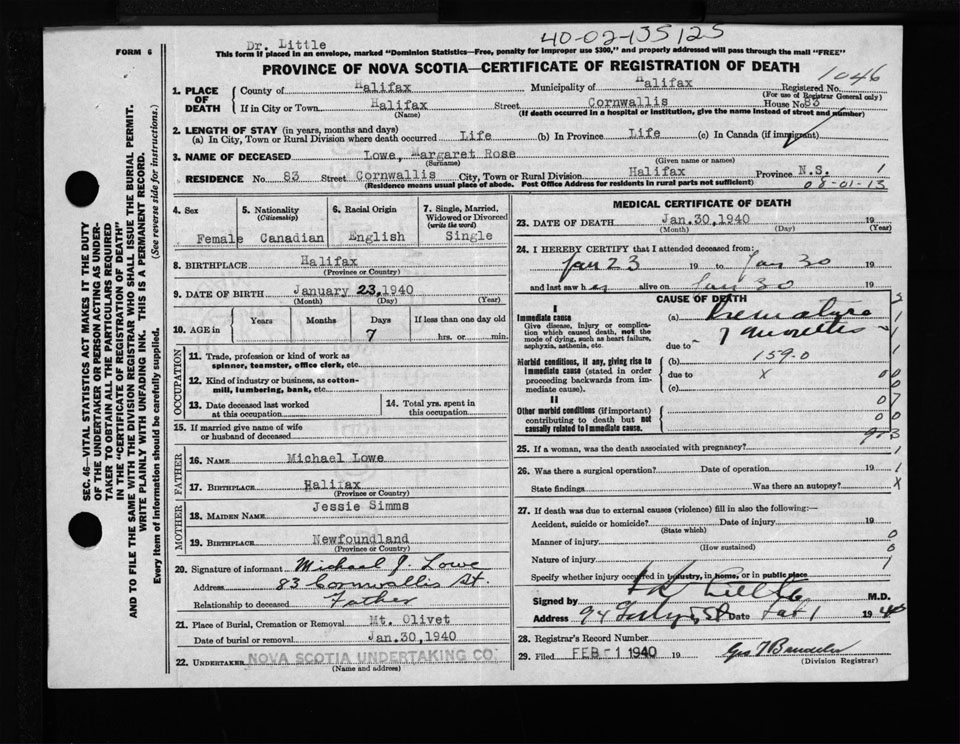 40-02-135125
FORM 6
Dr. Little
This form if placed in an envelope, marked "Dominion Statistics—Free, penalty for improper use $300," and properly addressed will pass through the mail "FREE"
PROVINCE OF NOVA SCOTIA—CERTIFICATE OF REGISTRATION OF DEATH
1046
1. PLACE OF DEATH
County of Halifax Municipality of Halifax Registered No.
(For use of Registrar General only)
If in City or Town Halifax Street Cornwallis House No. 83
(Name) (If death occurred in a hospital or institution, give the name instead of street and number)
2. LENGTH OF STAY (in years, months and days)
(a) In City, Town or Rural Division where death occurred Life (b) In Province Life (c) In Canada (if immigrant)
3. NAME OF DECEASED Lowe, Margaret Rose
(Surname) (Given name or names)
RESIDENCE No. 83 Street Cornwallis City, Town or Rural Division Halifax Province N.S. 1
(Residence means usual place of abode. Post Office Address for residents in rural parts not sufficient) 08-01-13
4. Sex
Female
5. Nationality
(Citizenship)
Canadian
6. Racial Origin
English
7. Single, Married, Widowed or Divorced
(write the word)
Single
8. BIRTHPLACE Halifax
(Province or Country)
9. DATE OF BIRTH January 23, 1940
(Month) (Day) (Year)
10. AGE in
Years Months Days If less than one day old
7 hrs. or min.
OCCUPATION
11. Trade, profession or kind of work as spinner, teamster, office clerk, etc.
12. Kind of industry or business, as cotton-mill, lumbering, bank, etc.
13. Date deceased last worked at this occupation
14. Total yrs. spent in this occupation
15. If married give name of wife or husband of deceased
FATHER
16. NAME Michael Lowe
17. BIRTHPLACE Halifax
(Province or Country)
MOTHER
18. MAIDEN NAME Jessie Simms
19. BIRTHPLACE Newfoundland
(Province or Country)
20. Signature of informant Michael J. Lowe
Address 83 Cornwallis St.
Relationship to deceased Father
21. Place of Burial, Cremation or Removal Mt. Olivet
Date of burial or removal Jan.30,1940
22. UNDERTAKER NOVA SCOTIA UNDERTAKING CO.
(Name and address)
MEDICAL CERTIFICATE OF DEATH
23. DATE OF DEATH Jan.30,1940 19
(Month) (Day) (Year)
24. I HEREBY CERTIFY that I attended deceased from:
Jan 23 19 to Jan 30 19
and last saw her alive on Jan 30 19
CAUSE OF DEATH
I
Immediate cause
Give disease, injury or complication which caused death, not the mode of dying, such as heart failure, asphyxia, asthenia, etc.
(a) Premature
due to 7 months
Morbid conditions, if any, giving rise to immediate cause (stated in order proceeding backwards from immediate cause).
(b) 159.0
due to x
(c)
II
Other morbid conditions (if important) contributing to death but not causally related to immediate cause.
25. If a woman, was the death associated with pregnancy?
26. Was there a surgical operation? Date of operation 19
State findings Was there an autopsy?
27. If death was due to external causes (violence) fill in also the following:—
Accident, suicide or homicide? Date of injury 19
(State which)
Manner of injury
(How sustained)
Nature of injury
Specify whether injury occurred in industry, in home, or in public place
Signed by Little M.D.
Address 94 St Date 1 1940
28. Registrar's Record Number
29. Filed FEB -1 1940 19
(Division Registrar)
SEC. 46—VITAL STATISTICS ACT MAKES IT THE DUTY OF THE UNDERTAKER OR PERSON ACTING AS UNDERTAKER TO OBTAIN ALL THE PARTICULARS REQUIRED IN THE "CERTIFICATE OF REGISTRATION OF DEATH" AND TO FILE THE SAME WITH THE DIVISION REGISTRAR WHO SHALL ISSUE THE BURIAL PERMIT.
WRITE PLAINLY WITH UNFADING INK. THIS IS A PERMANENT RECORD.
Every item of information should be carefully supplied. (See reverse side for instructions.)